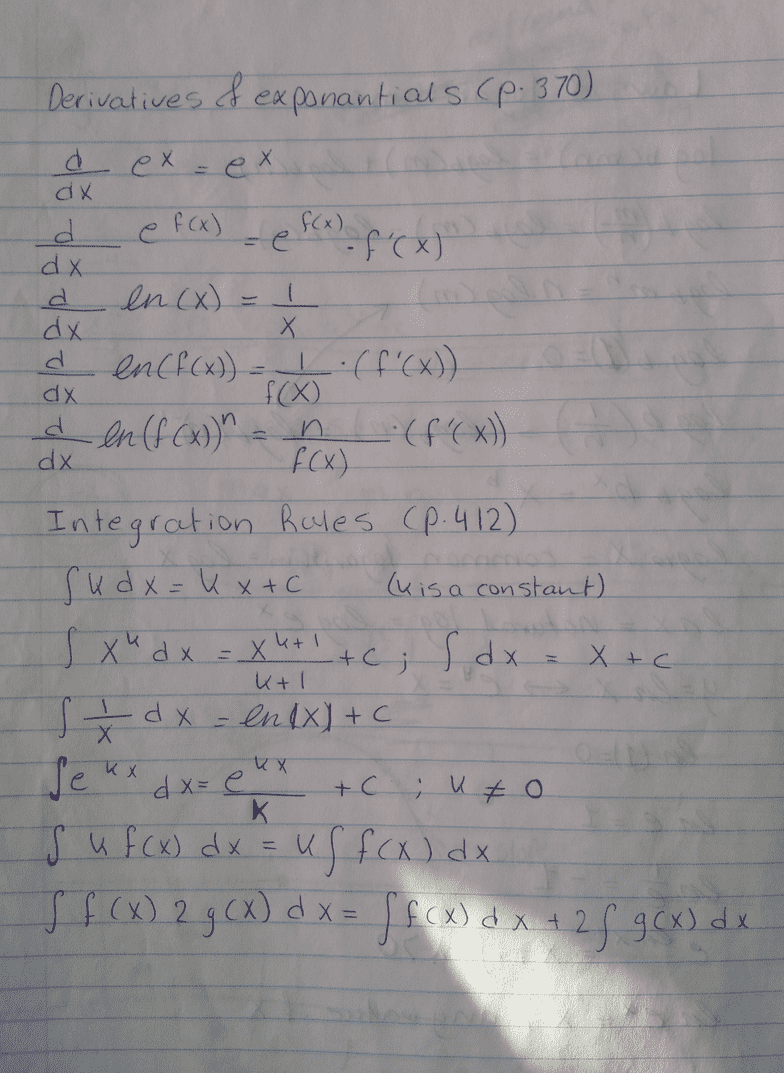 Derivatives of exponantials (p. 370)
d/dx e^x = e^x
d/dx e^f(x) = e^f(x) · f'(x)
d/dx ln(x) = 1/x
d/dx ln(f(x)) = 1/f(x) · (f'(x))
d/dx ln(f(x))^n = n/f(x) · (f'(x))
Integration Rules (p. 412)
∫ k dx = k x + c (k is a constant)
∫ x^k dx = x^(k+1)/(k+1) + c ; ∫ dx = x + c
∫ 1/x dx = ln|x| + c
∫ e^(kx) dx = e^(kx)/k + c ; k ≠ 0
∫ k f(x) dx = k ∫ f(x) dx
∫ f(x) 2 g(x) dx = ∫ f(x) dx + 2 ∫ g(x) dx